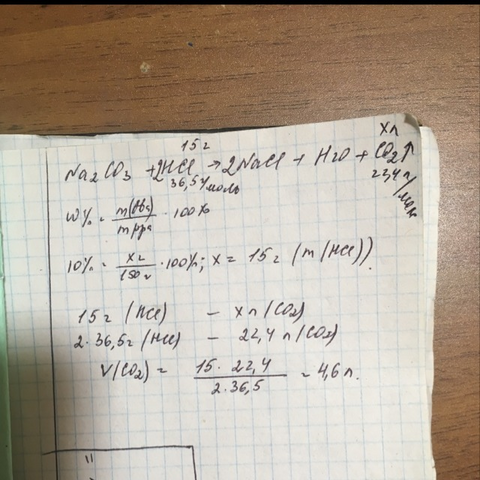 15 г xл
Na2CO3 + 2HCl → 2NaCl + H2O + CO2↑
36,5 г/моль 22,4 л/моль
W% = m(в-ва) / m р-ра · 100%
10% = xг / 150г · 100%; x = 15 г (m(HCl)).
15 г (HCl) — xл (CO2)
2·36,5г (HCl) — 22,4 л (CO2)
V(CO2) = 15·22,4 / 2·36,5 = 4,6 л.